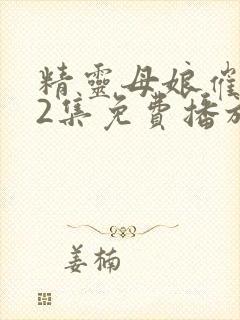 精靈母娘催
2集免費播放
姜楠